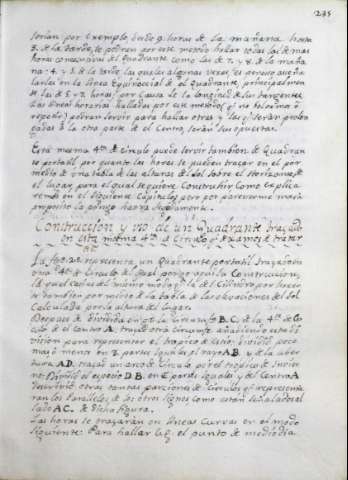 235
serian por exemplo, desde 9. horas de la mañana hasta
3. de la tarde, se podran por este metodo hallar todas las de mas
horas comensuras del Quadrante como las de 7. y 8. de la maña
na. 4. y 5. de la tarde las quales algunas veces es preciso
las en la linea Equinocial de el quadrante principalmen
te las de 5. y 7. horas, por causa de la longitud de las tangentes
Las lineas horarias halladas por este metodo (q
) podran servir para hallar otras y las q. seran prolon
gadas à la otra parte de el Centro, seran sus opuestas.
Esta mesma 4.ta de Circulo puede servir tambien de Quadran
te portatil por quanto las horas se pueden trazar en el por
medio de una tabla de las alturas de el Sol sobre el Horizonte, de
el lugar, para el qual se quiere Construhir, Como explica
remos en el siguiente Capitulo, pero por parecerme mas à
proposito la pongo haora
Construccion y uso de un Quadrante trazado
en esta mesma 4.ta de Circulo q. examos de tratar
La fig. 22. representa un Quadrante portatil trazado en
una 4.ta de Circulo del qual pongo aqui la Construccion,
la qual es casi del mismo modo q. la de el Cilindro por hacer
se tambien por medio de la tabla de las elevaciones del Sol
Calculada por la altura de el lugar.
Despues de dividida en 90. la circunfa. B.C. de la 4.ta de Cir
culo de el Centro A, trazese otra circunfa. añadiendo esta di
vision para representar el tropico de Estio; dividase poco
mas ò menos en 2. partes iguales el rayo AB. y de la aber
tura AD. tracese un arco de Circulo por el tropico de Invier
no. Dividase el espacio DB. en 6 partes iguales y del Centro A
descrivase otras tantas porciones de Circulos q. representa
ran los Paralleles de los otros signos como estan señalados al
lado AC. de dicha figura.
Las horas se trazarán en lineas Curvas en el modo
siguiente: Para hallar v.g. el punto de medio dia